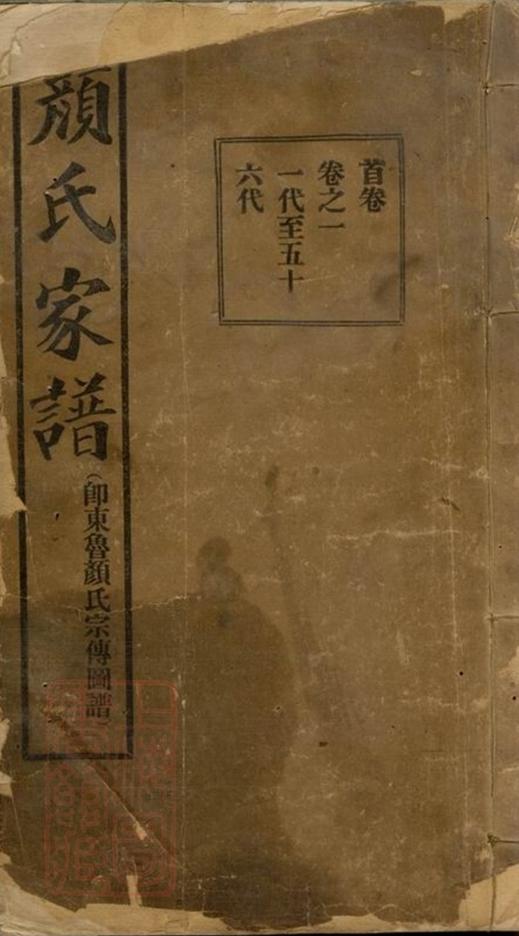 首卷
卷之一
一代至五十
六代
顏氏家譜
(卽東魯顏氏宗傳圖譜)